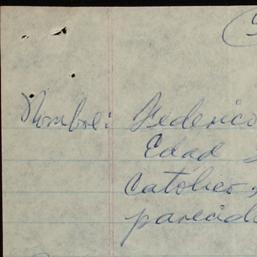 Nombre: Federico
Edad
Catolico,
parecid